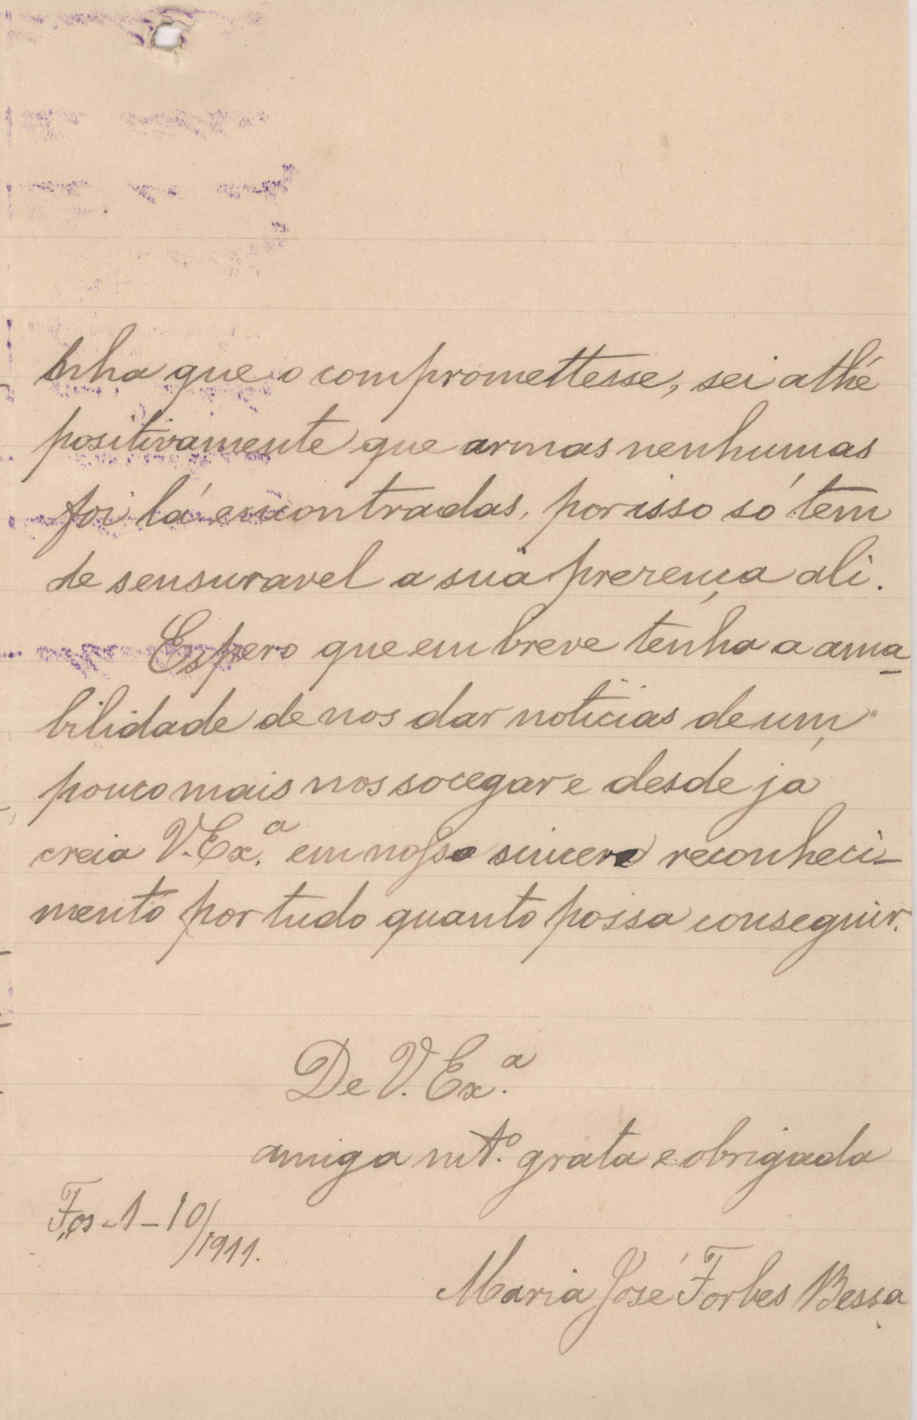 tinha que o compromettesse, sei athé
positivamente que armas nenhumas
foi lá encontradas, por isso só tem
de sensuravel a sua prezença ali.
Espero que em breve tenha a ama-
bilidade de nos dar noticias de um
pouco mais nos socegar e desde já
creia V. Ex.ª em nosso sincero reconheci-
mento por tudo quanto possa conseguir.
De V. Ex.ª
amiga mt.º grata e obrigada
Foz-1-10/1911.
Maria José Forbes Bessa